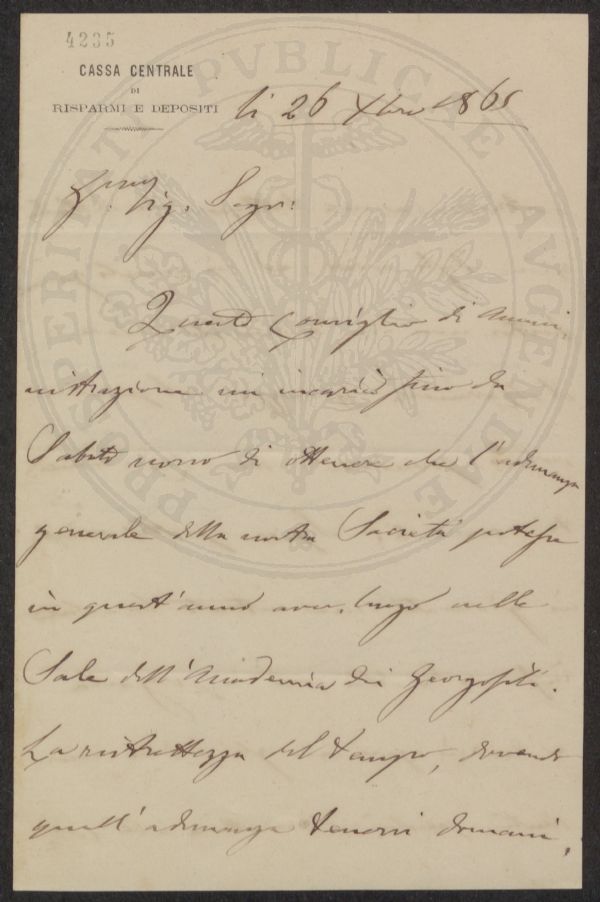 4235
CASSA CENTRALE
DI
RISPARMI E DEPOSITI
li 26 Xbre 1865
Sig. Segr:
Questo Consiglio di Ammi,
nistrazione mi incaricò fino da
Sabato scorso di ottenere che l'adunanza
generale della nostra Società potesse
in quest'anno aver luogo nelle
Sale dell'Accademia dei Georgofili.
La ristrettezza del tempo, dovendo
quell'adunanza tenersi domani,
PROSPERITATI PVBLICAE AVGENDAE